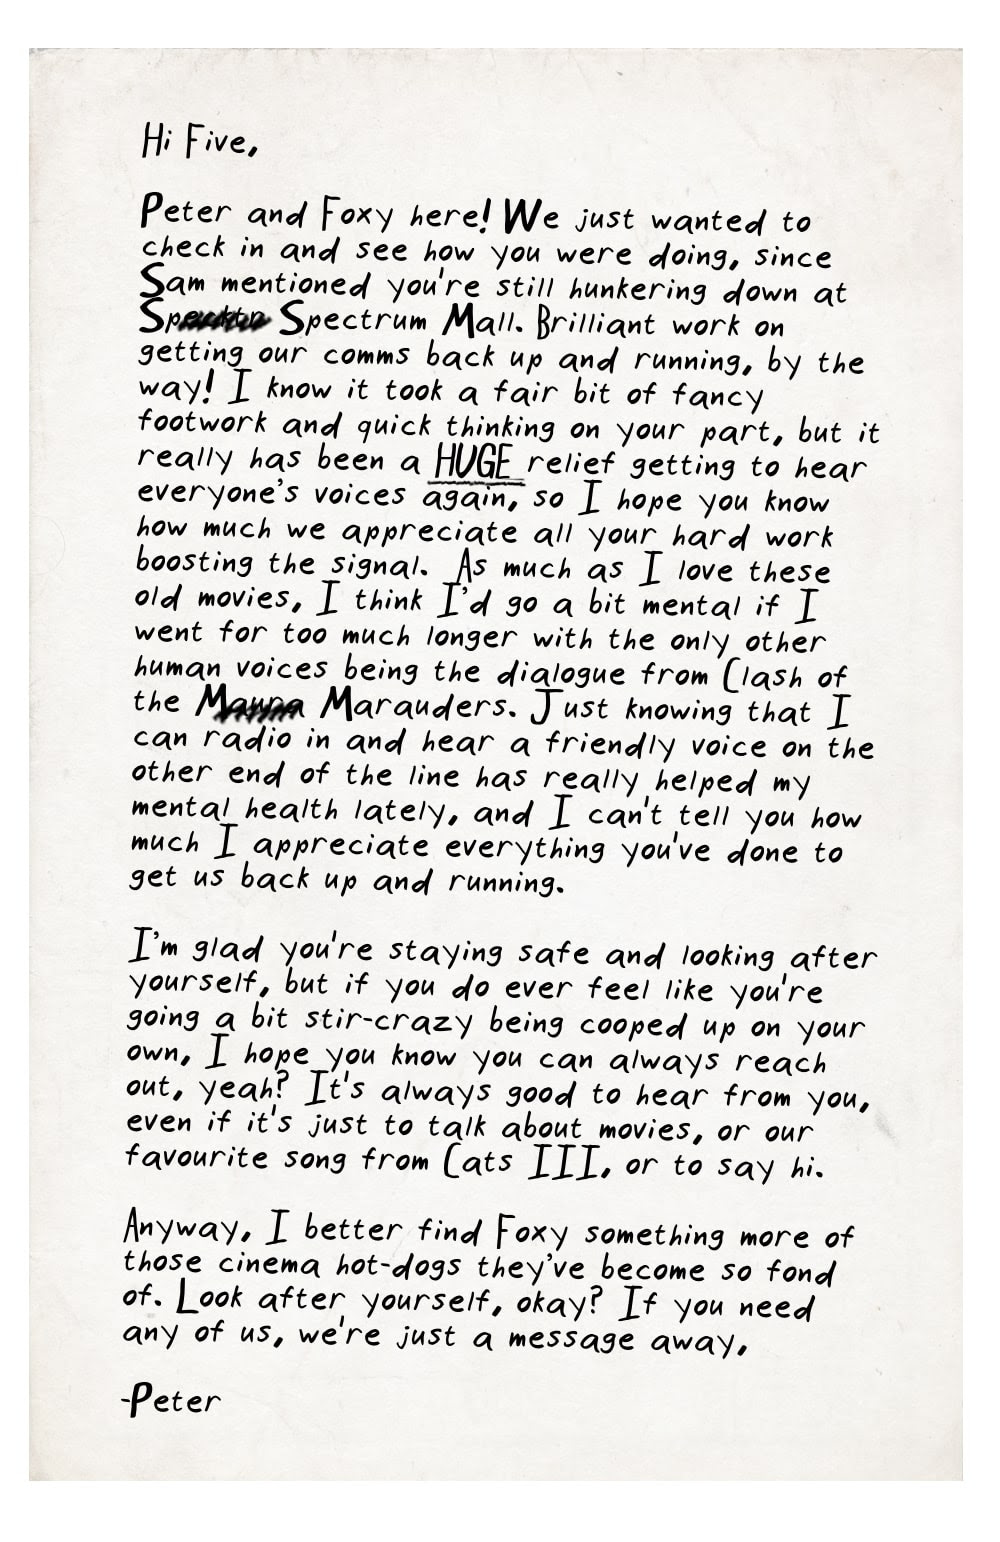 Hi Five,
Peter and Foxy here! We just wanted to
check in and see how you were doing, since
Sam mentioned you're still hunkering down at
Spectrum Mall. Brilliant work on
getting our comms back up and running, by the
way! I know it took a fair bit of fancy
footwork and quick thinking on your part, but it
really has been a HUGE relief getting to hear
everyone's voices again, so I hope you know
how much we appreciate all your hard work
boosting the signal. As much as I love these
old movies, I think I'd go a bit mental if I
went for too much longer with the only other
human voices being the dialogue from Clash of
the Marauders. Just knowing that I
can radio in and hear a friendly voice on the
other end of the line has really helped my
mental health lately, and I can't tell you how
much I appreciate everything you've done to
get us back up and running.
I'm glad you're staying safe and looking after
yourself, but if you do ever feel like you're
going a bit stir-crazy being cooped up on your
own, I hope you know you can always reach
out, yeah? It's always good to hear from you,
even if it's just to talk about movies, or our
favourite song from Cats III, or to say hi.
Anyway, I better find Foxy something more of
those cinema hot-dogs they've become so fond
of. Look after yourself, okay? If you need
any of us, we're just a message away,
-Peter